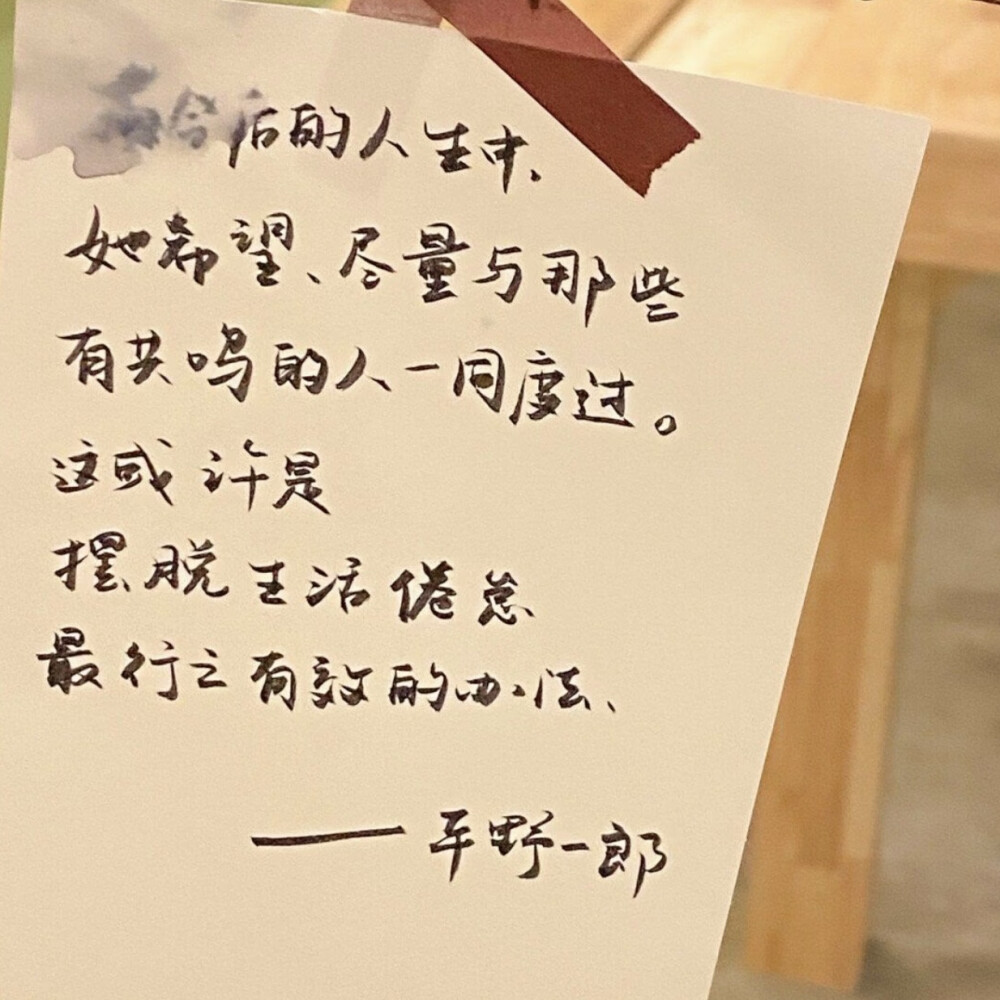 今后的人生中、
她希望、尽量与那些
有共鸣的人一同度过。
这或许是
摆脱生活倦怠
最行之有效的办法、
——平野一郎